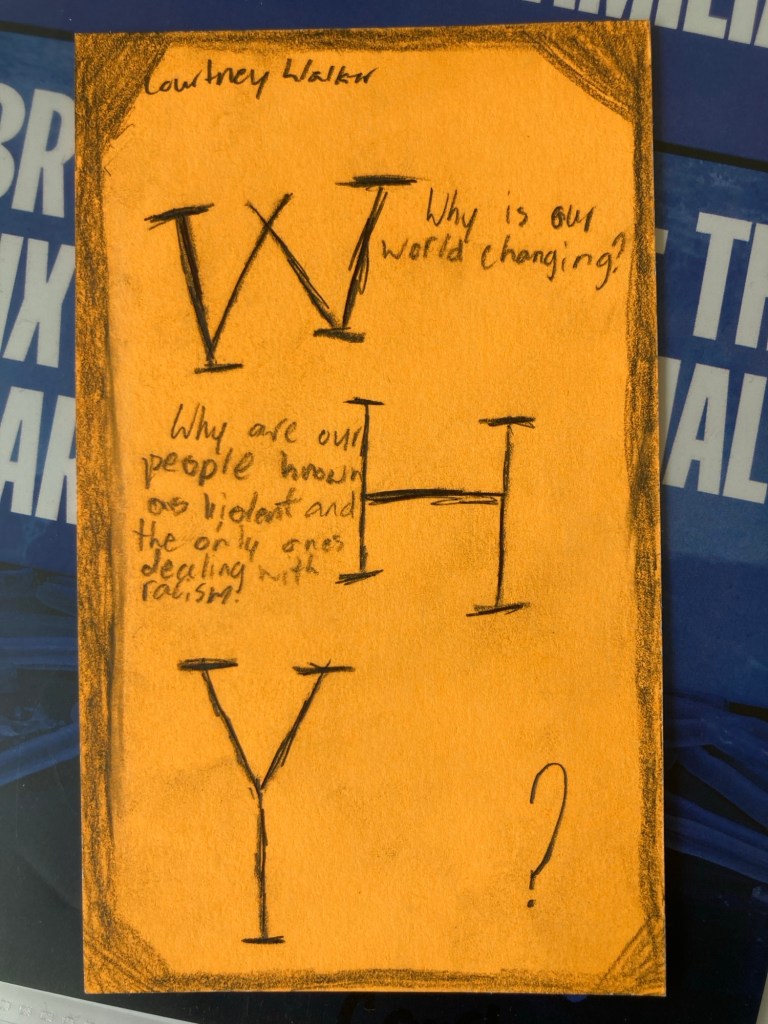 Courtney Walker
W
Why is our
world changing?
H
Why are our
people known
as violent and
the only ones
dealing with
racism?
Y
?
BR
IX
AR
AMILI
E TH
IAL